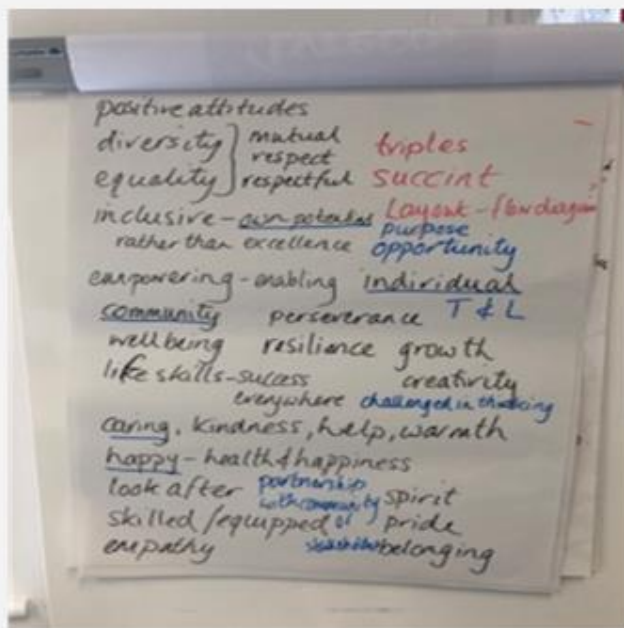 positive attitudes
diversity } mutual respect triples
equality } respectful succint
inclusive - own potential Layout - flow diagram
purpose
rather than excellence opportunity
empowering - enabling individual
community perseverance T & L
wellbeing resilience growth
life skills - success creativity
everywhere challenged in thinking
caring, kindness, help, warmth
happy - health & happiness
look after partnership spirit
with community
skilled/equipped pride
empathy belonging